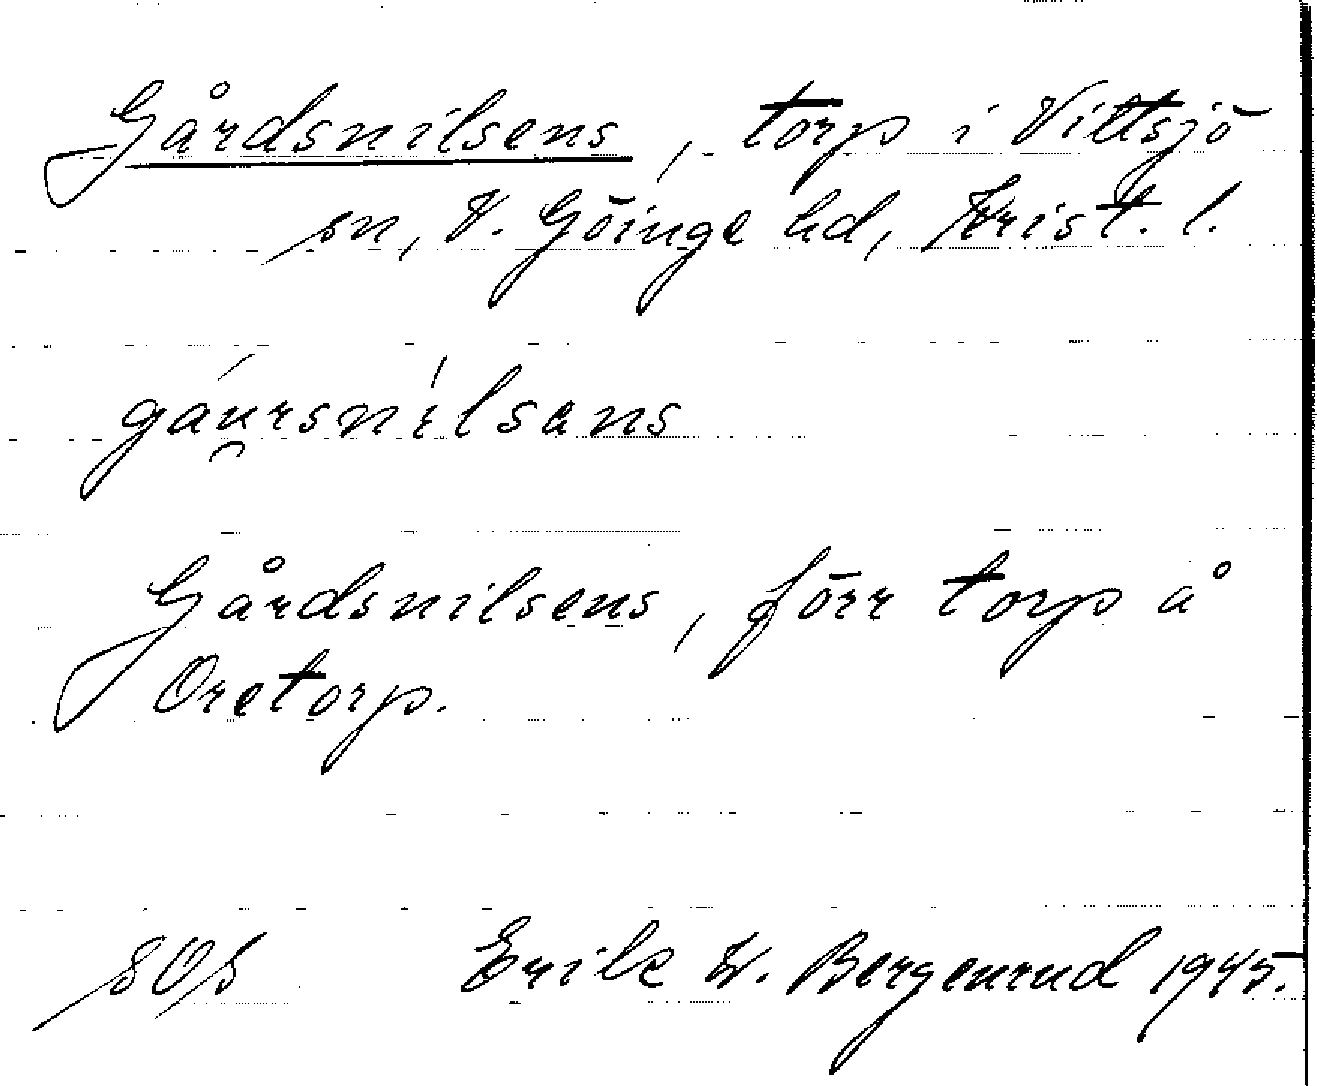 Gårdsnilsens, torp i Vittsjö
sn, V. Göinge hd, Krist. l.
gáu̯rsnìlsans
Gårdsnilsens, förr torp å
Oretorp.
SOS Erik W. Bergenrud 1945.